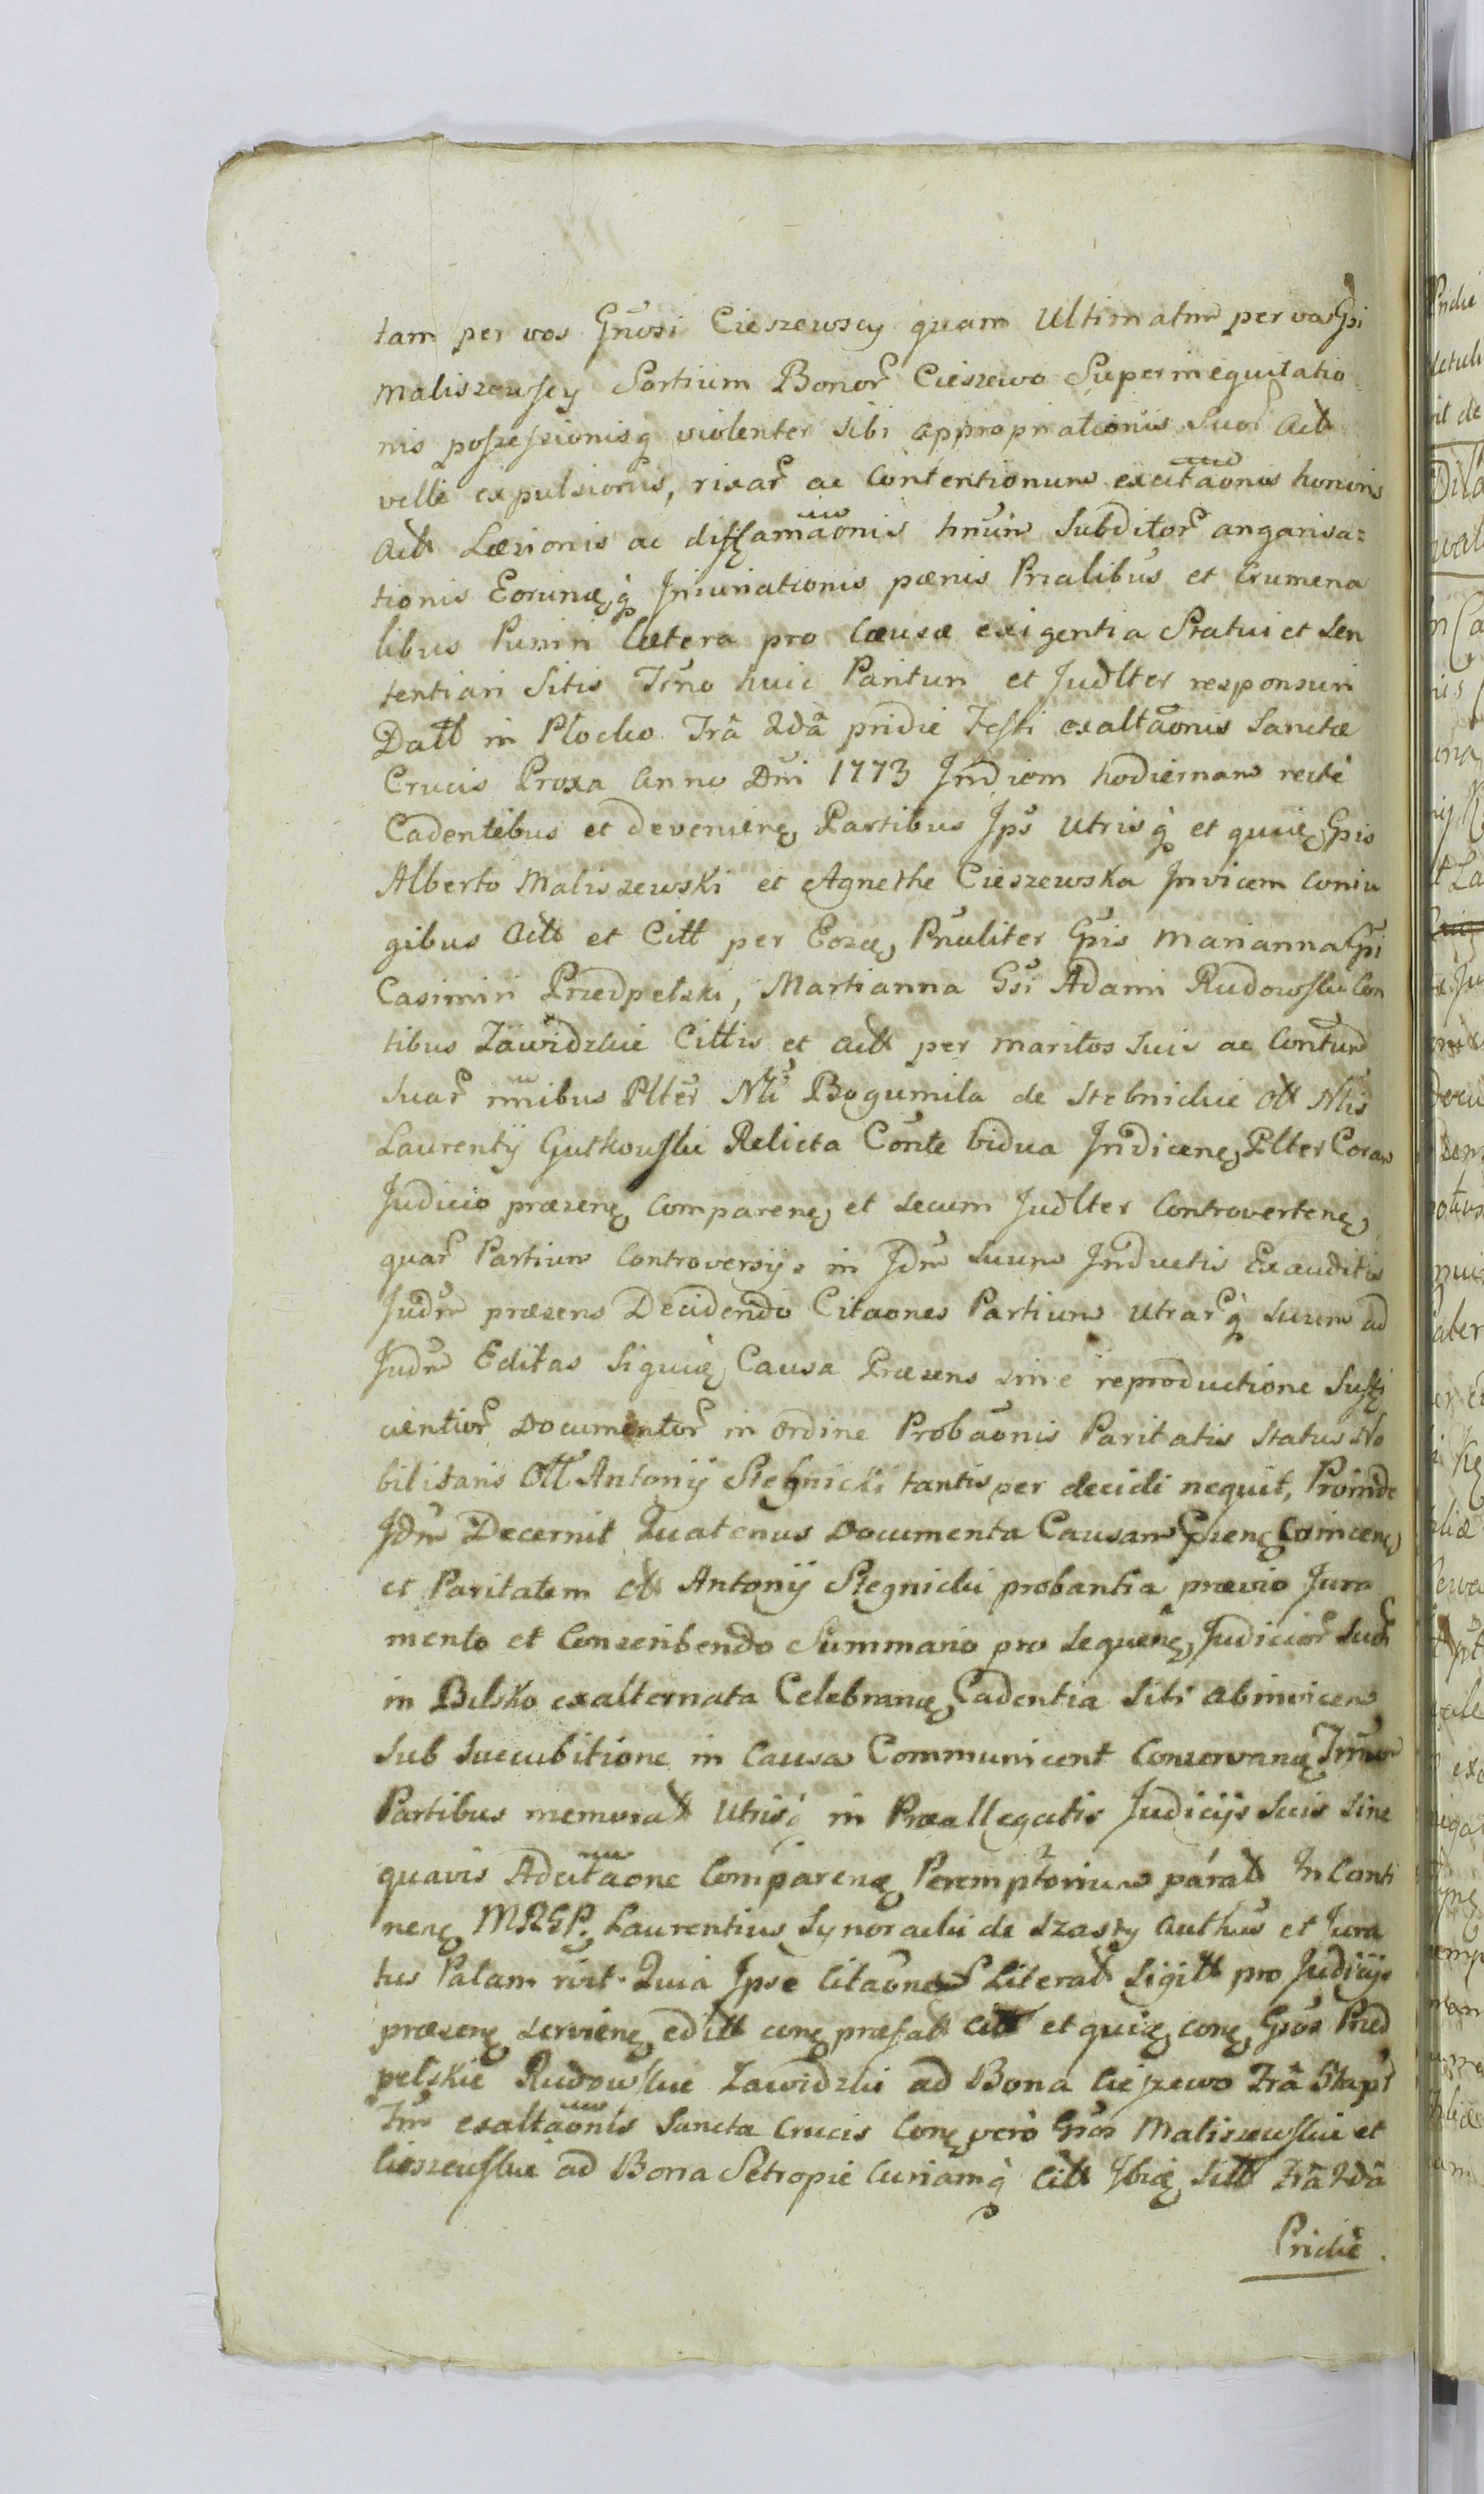 tam per vos Gnrosi Cieszewscy quam Ultimatim per vos Gsi
Maliszewscy Sortium Bonor Cieszewo Superinequitatio
nis possessionisq violenter sibi appropriationis Suor Actt
velle expulsionis, rixar ac Contentionum excitaonis honoris
Actt Læzionis ac diffamaonis hnun Subditor angarisa=
tionis Eorund q Iniuriationis pœnis Prialibus et Crumena
libus Puniri Cætera pro Causæ exigentia Statui et Sen
tentiari Sitis Trno huic Parituri et Judlter responsuri
Datt in Plocko Fra 2da pridie Festi exaltaonis Sanctæ
Crucis Proxa Anno Dni 1773 In diem hodiernam recte
Cadentibus et devenien Partibus Ips Utrisq et quid Gsis
Alberto Maliszewski et Agnethe Cieszewska Invicem Coniu
gibus Actt et Citt per Eosd Pnaliter Gsis Marianna Gsi
Casimiri Przedpelski, Martianna Gsi Adami Rudowski Con
tibus Zawidzkie Cittis et Actt per maritos suis ac Contund
Suar nnibus Plter Nli Bogumila de Stebnickie Ott Nlis
Laurentij Gutkowski Relicta Conte vidua Indicen Plter Coram
Judicio præzen Comparen et secum Judlter Controverten
quar Partium Controversijs in Idm suum Inductis Exauditis
Judm præzens Decidendo Citaones Partium Utrarq Suum ad
Judm Editas Siquid Causa Præzens sine reproductione Suffi
cientior Documentor in Ordine Probaonis Paritatis Status No
bilitaris Ott Antonij Stegnicki tantisper decidi nequit, Proinde
Idm Decernit Quatenus Documenta Causam Conincen
et Paritatem Ott Antonij Stegnicki probantia prævio Jura
mento et Conscribendo Summario pro sequen Judicior Suor
in Bilsko exalternata Celebrand Cadentia Sibi abinvicem
Sub Succubitione in Causa Communicent Conservand Trmum
Partibus memoratt Utrisq in Præallegatis Judicijs Suis Sine
quavis Adcitaone Comparend Peremptorium paratt In Conti
nen MRSP. Laurentius Synoradzki de Szasty Authus et Jura
tus Palam rivit Quia Ipse Citaones Literatt Sigitt pro Judicijs
præzen Servien editt præfatt Citt et quid Gsos Przed
pelskie Rudowskie Zawidzki ad Bona Cieszewo Fra
exaltaonis Sancta Crucis vero Gsos Maliszewskie et
Cieszewskie ad Bona Setropie Curiamq Citt Ibid Sitt Fra 2da
Pridie